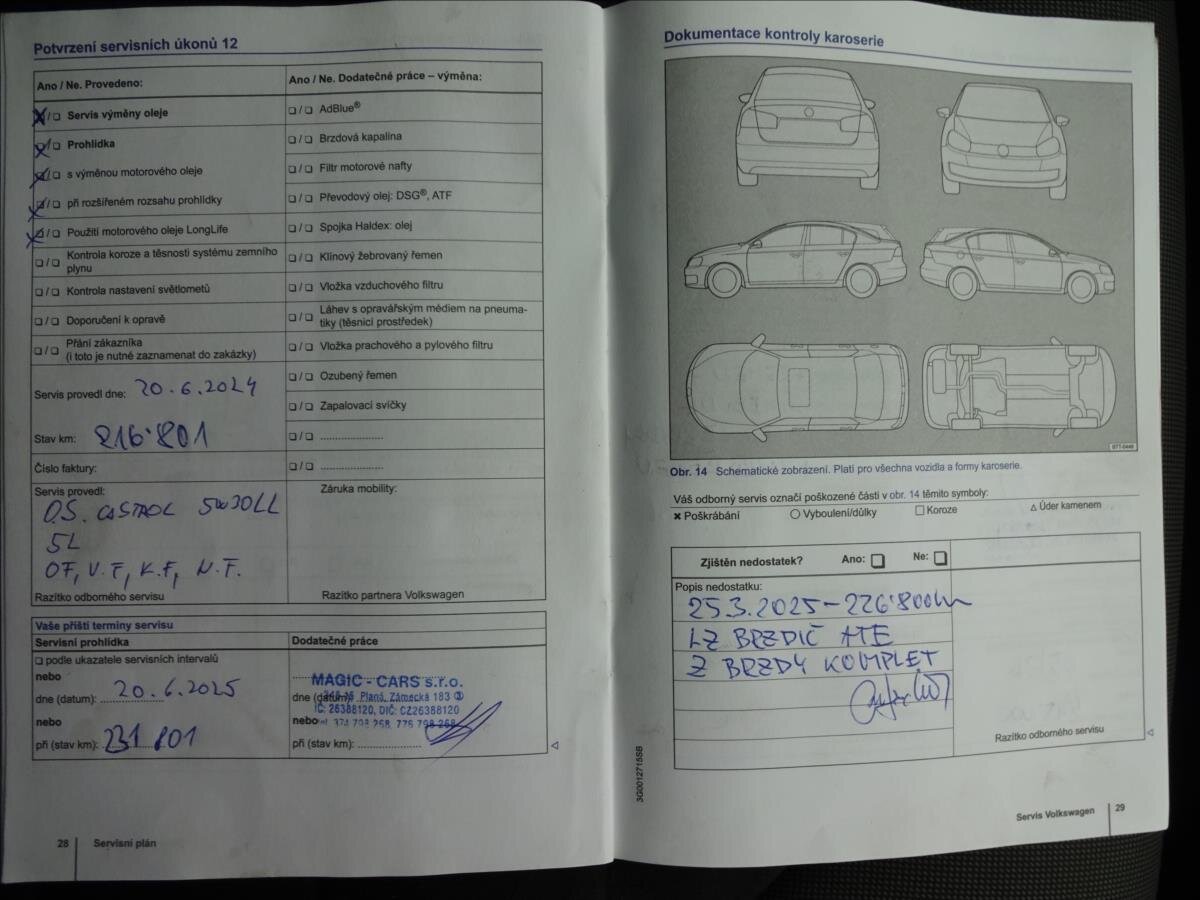 Potvrzení servisních úkonů 12
Ano / Ne. Provedeno:
❏/❏ Servis výměny oleje
❏/❏ Prohlídka
❏/❏ s výměnou motorového oleje
❏/❏ při rozšířeném rozsahu prohlídky
❏/❏ Použití motorového oleje LongLife
❏/❏ Kontrola koroze a těsnosti systému zemního
plynu
❏/❏ Kontrola nastavení světlometů
❏/❏ Doporučení k opravě
❏/❏ Přání zákazníka
(i toto je nutné zaznamenat do zakázky)
Servis provedl dne: 20.6.2024
Stav km: 216'801
Číslo faktury:
Servis provedl:
O.S. CASTROL 5W30LL
5L
OF, V.F, K.F, N.F.
Razítko odborného servisu
Ano / Ne. Dodatečné práce – výměna:
❏/❏ AdBlue®
❏/❏ Brzdová kapalina
❏/❏ Filtr motorové nafty
❏/❏ Převodový olej: DSG®, ATF
❏/❏ Spojka Haldex: olej
❏/❏ Klínový žebrovaný řemen
❏/❏ Vložka vzduchového filtru
❏/❏ Láhev s opravářským médiem na pneuma-
tiky (těsnicí prostředek)
❏/❏ Vložka prachového a pylového filtru
❏/❏ Ozubený řemen
❏/❏ Zapalovací svíčky
❏/❏ .....................
❏/❏ .....................
Záruka mobility:
Razítko partnera Volkswagen
Vaše příští termíny servisu
Servisní prohlídka
❏ podle ukazatele servisních intervalů
nebo
dne (datum): 20.6.2025
nebo
při (stav km): 231 801
Dodatečné práce
MAGIC - CARS s.r.o.
dne (datum): Planá, Zámecká 183
IČ: 26388120, DIČ: CZ26388120
nebo tel. 374 798 268, 776 798 268
při (stav km): .....................
28 Servisní plán
Dokumentace kontroly karoserie
B7T-0446
Obr. 14 Schematické zobrazení. Platí pro všechna vozidla a formy karoserie.
Váš odborný servis označí poškozené části v obr. 14 těmito symboly:
✖ Poškrábání ○ Vyboulení/důlky □ Koroze △ Úder kamenem
Zjištěn nedostatek? Ano: ❏ Ne: ❏
Popis nedostatku:
25.3.2025-226'800km
LZ BRZDIČ ATE
Z BRZDY KOMPLET
Razítko odborného servisu
3G0012715SB
Servis Volkswagen 29